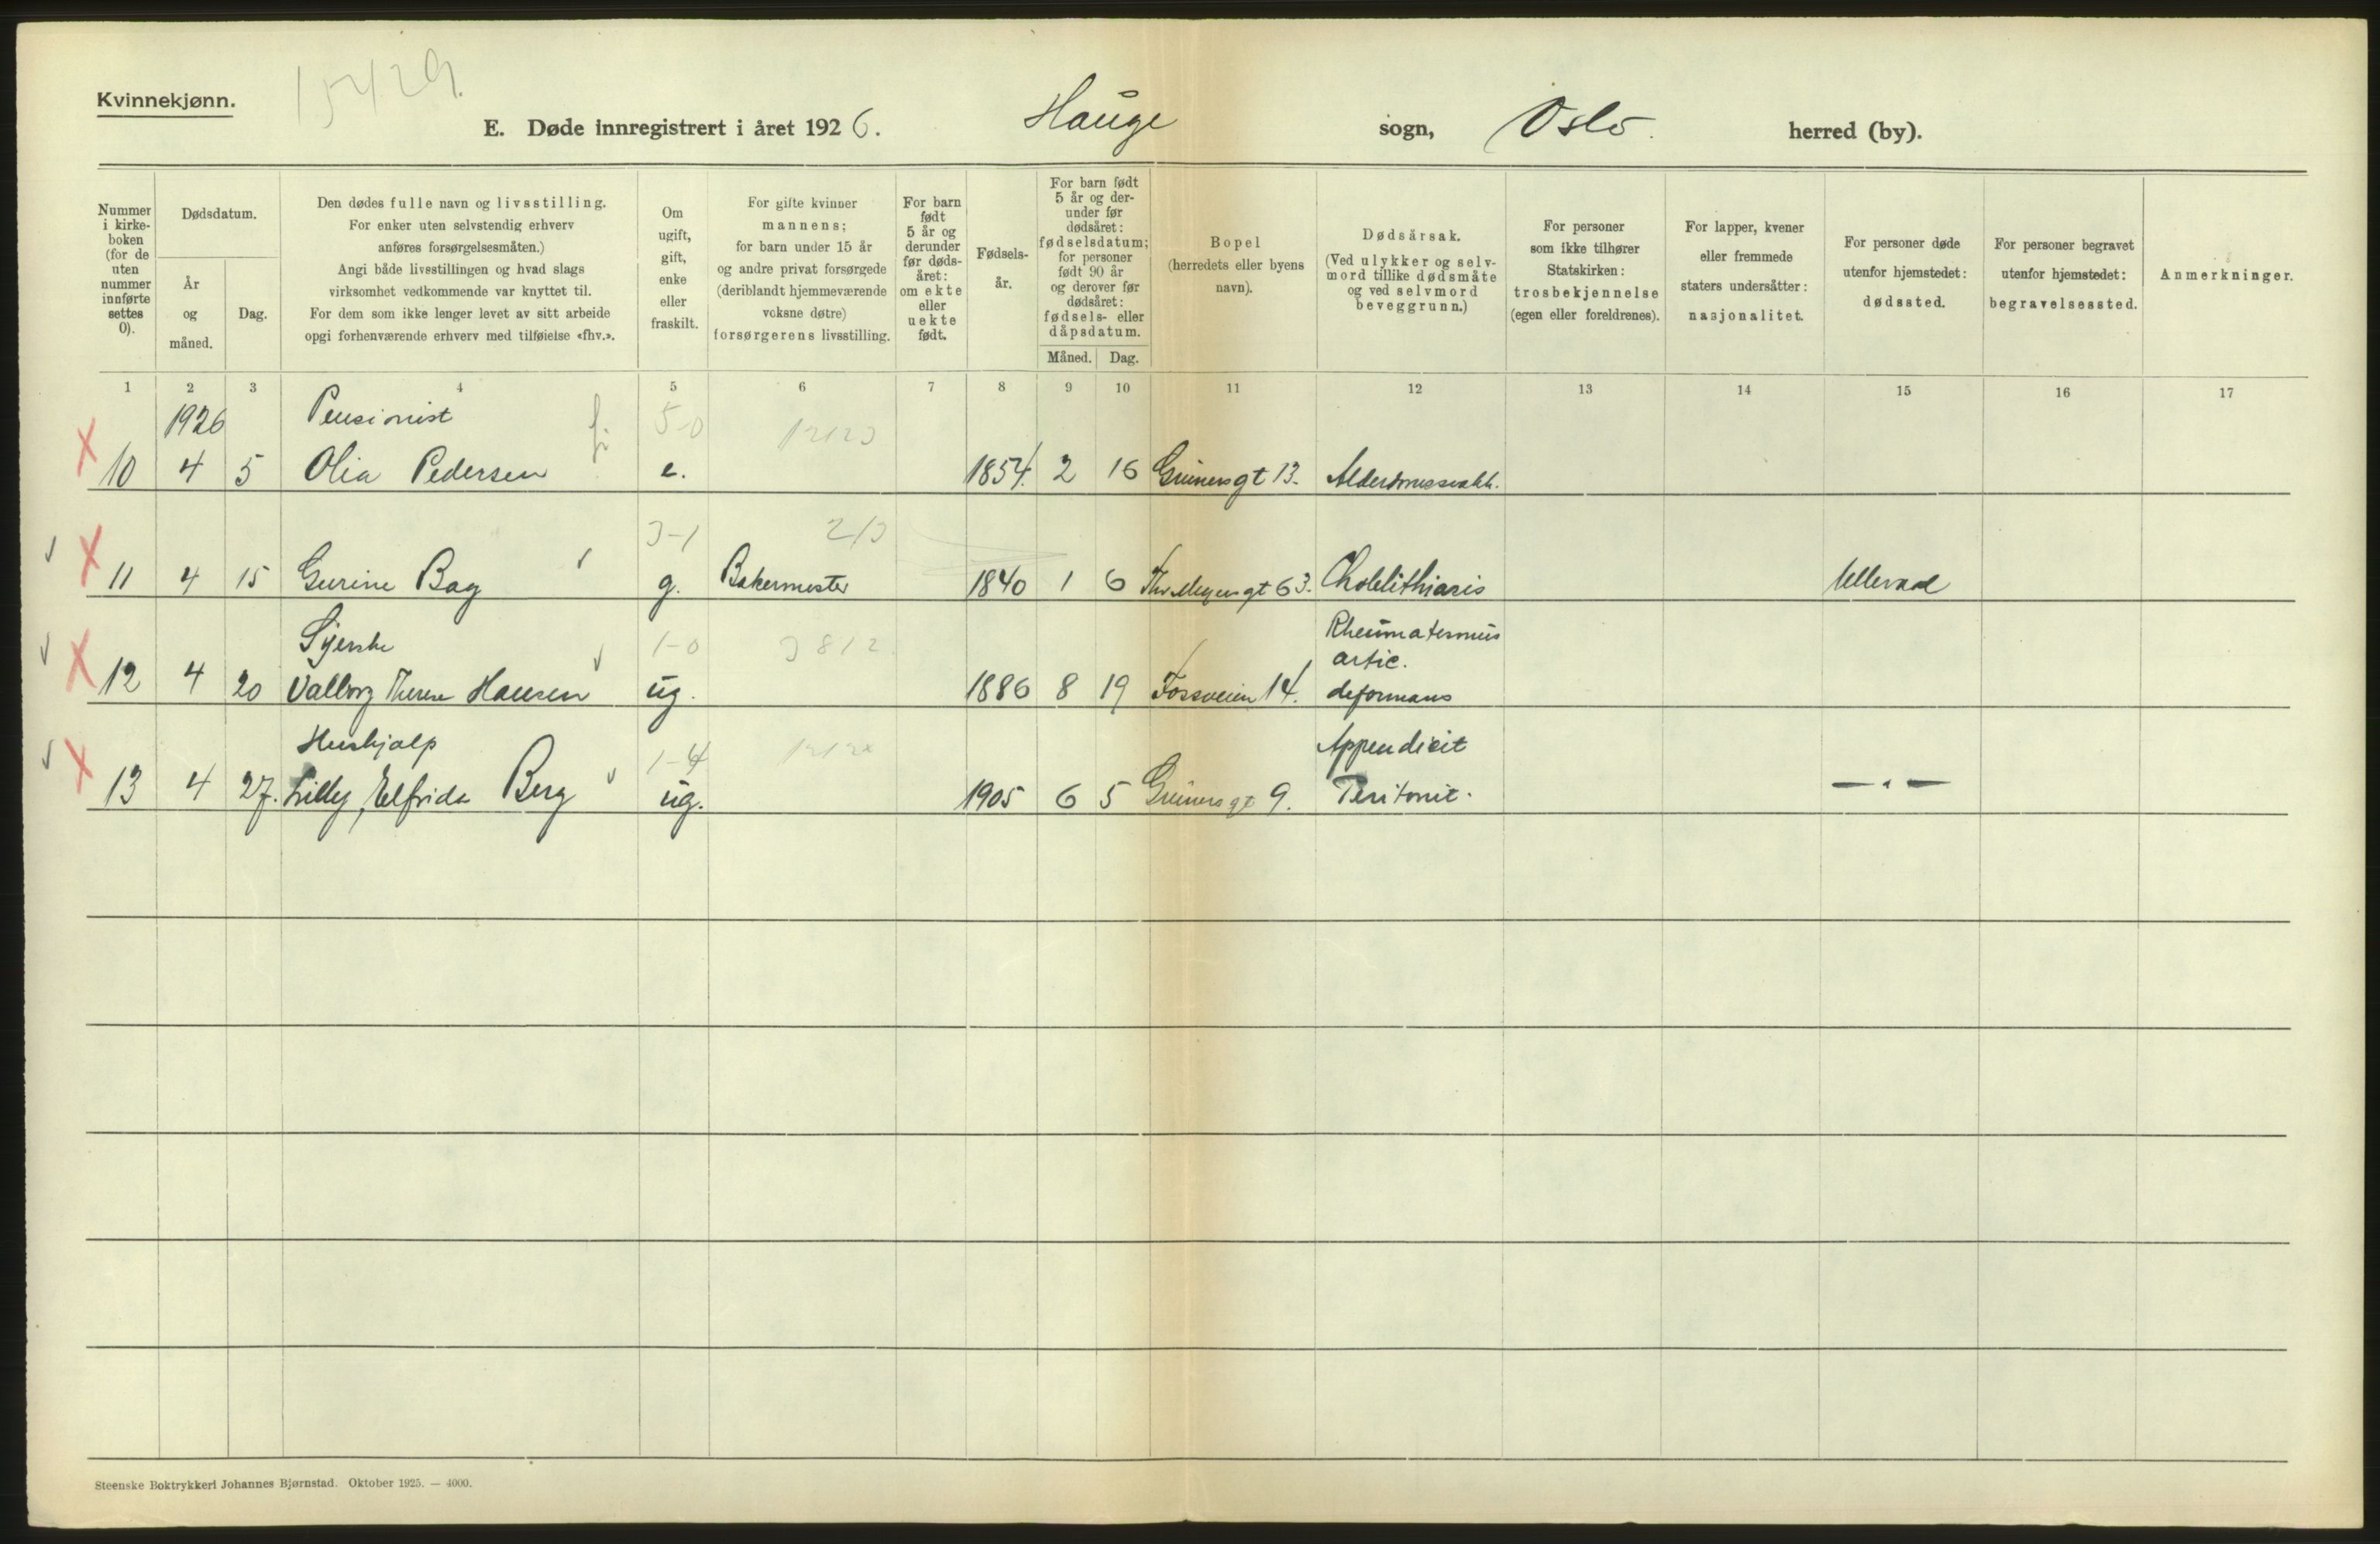 Kvinnekjønn.
15429.
E. Døde innregistrert i året 1926. Hauge sogn, Oslo. herred (by).
Nummer i kirke-boken (for de uten nummer innførte settes 0).
Dødsdatum.
År og måned.
Dag.
Den dødes fulle navn og livsstilling.
For enker uten selvstendig erhverv
anføres forsørgelsesmåten.)
Angi både livsstillingen og hvad slags
virksomhet vedkommende var knyttet til.
For dem som ikke lenger levet av sitt arbeide
opgi forhenværende erhverv med tilføielse «fhv.».
Om
ugift,
gift,
enke
eller
fraskilt.
For gifte kvinner
mannens;
for barn under 15 år
og andre privat forsørgede
(deriblandt hjemmeværende
voksne døtre)
forsørgerens livsstilling.
For barn
født
5 år og
derunder
før døds-
året:
om ekte
eller
uekte
født.
Fødsels-
år.
For barn født
5 år og der-
under før
dødsåret:
fødselsdatum;
for personer
født 90 år
og derover før
dødsåret:
fødsels- eller
dåpsdatum.
Måned. Dag.
Bopel
(herredets eller byens
navn).
Dødsårsak.
(Ved ulykker og selv-
mord tillike dødsmåte
og ved selvmord
beveggrunn.)
For personer
som ikke tilhører
Statskirken:
trosbekjennelse
(egen eller foreldrenes).
For lapper, kvener
eller fremmede
staters undersåtter:
nasjonalitet.
For personer døde
utenfor hjemstedet:
dødssted.
For personer begravet
utenfor hjemstedet:
begravelsessted.
Anmerkninger.
1 2 3 4 5 6 7 8 9 10 11 12 13 14 15 16 17
1926 Pensionist 5-0
10 4 5 Olia Pedersen e. 1854. 2 16 Grünersgt 13.
213
11 4 15 Gurine Bag g. Bakermester 1840 1 6 Thv Meyersgt 63. Cholelithiasis Ullevaal
Syerske 1-0 3812. Rheumatismus
artic.
12 4 20 Valborg Therese Hansen ug. 1886 8 19 Fossveien 14. deformans
Hushjalp 1-4 Appendicit
13 4 27. Lilly, Elfrida Berg ug. 1905 6 5 Grünersgt 9. Peritonit. — „ —
Steenske Boktrykkeri Johannes Bjørnstad. Oktober 1925. — 4000.